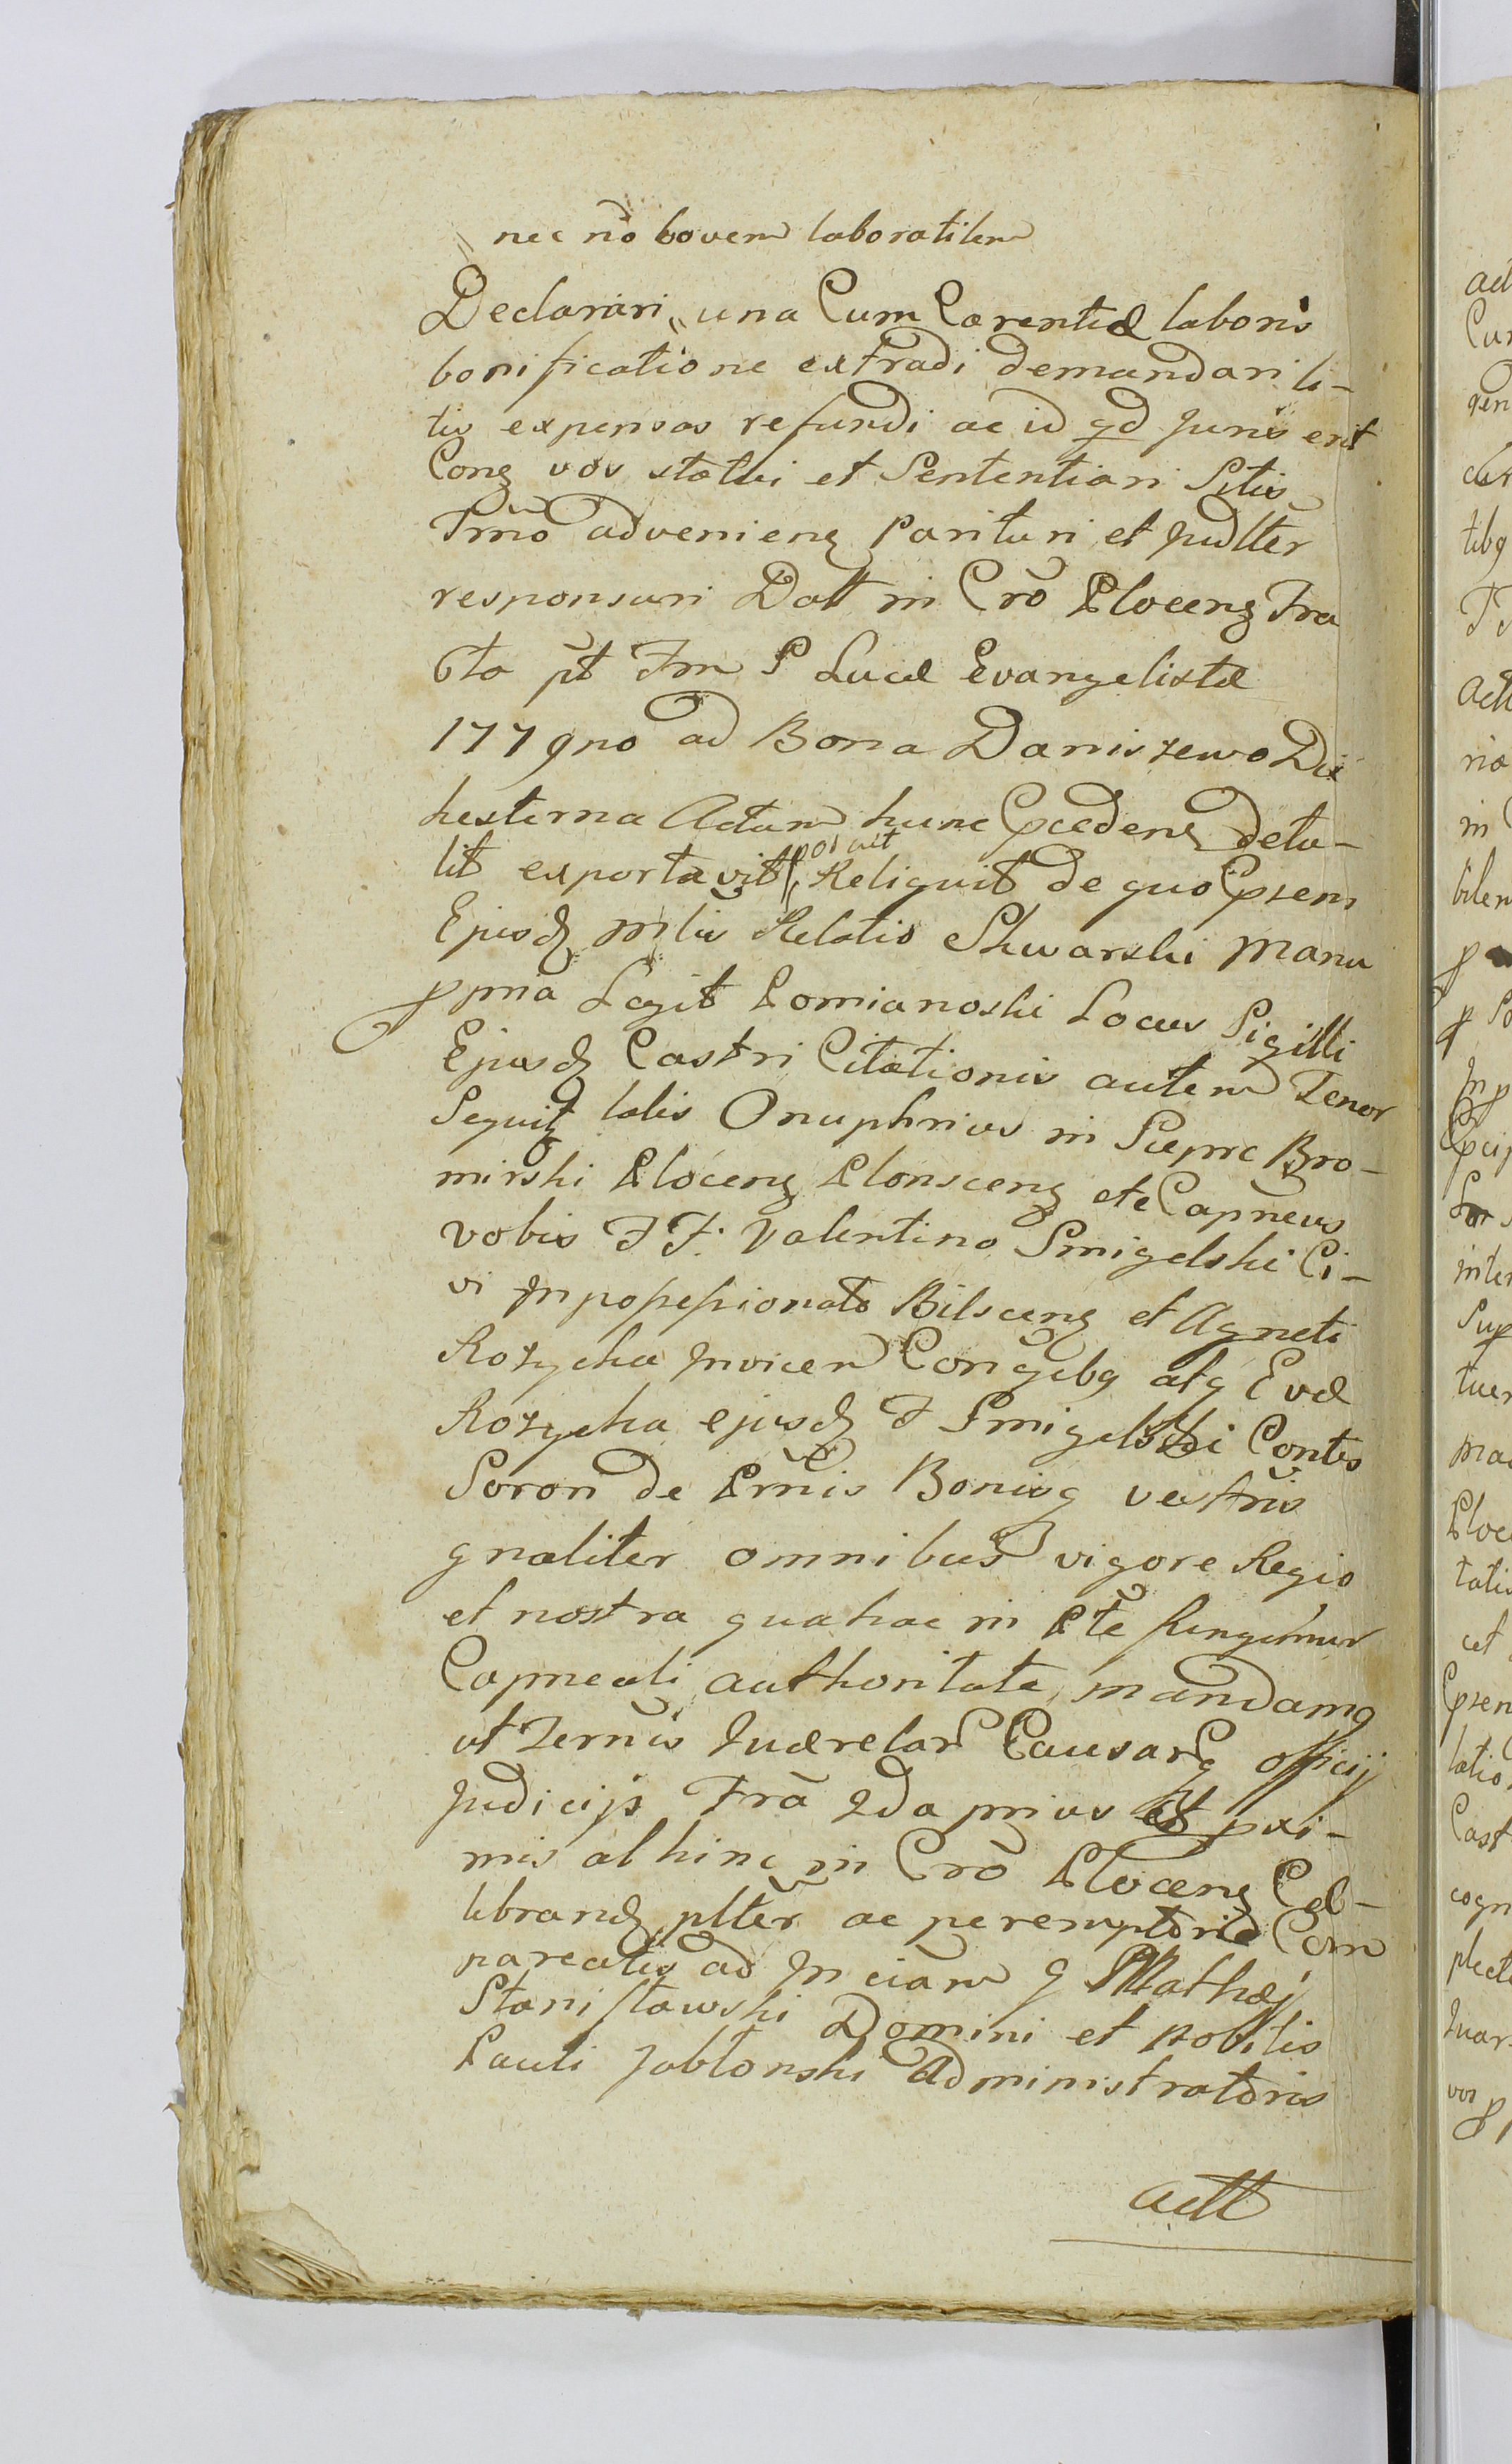 nec nō bovem laboratilem
Declarari una Cum Carentiæ laboris
bonificatione extradi demandari li-
tis expensas refundi ac id qd Juris erit
Conz vos statui et Sententiari Sitis
Trmo advenienz parituri et Judlter
responsuri Datt in Cro Plocenz Fra
6ta pt Fm S Lucæ Evangelistæ
1779no ad Bona Daniszewo Die
hesterna Actum hunc Præcedenz detu-
lit exportavit posuit Reliquit de quo Præsens
Ejusd Mlis Relatio Skwarski Manu
ppria Legit Pomianoski Locus Sigilli
Ejusd Castri Citationis autem Tenor
Sequit talis Onuphrius in Sieprc Bro-
mirski Plocenz Plonscenz etc Capneus
vobis FF. Valentino Smigelski Ci-
vi Inpossessionato Bilscenz et Agneti
Rozycka Invicem Conjgibq atq Evæ
Rozycka ejusd F Smigelski Contis
Sorori de Prnis Bonisq vestris
gnaliter omnibus vigore Regio
et nostra qua hac in Pte fungimur
Capneali authoritate mandamq
ut Ternis Quærelar Causarq officij
Judicijs Fra 2da prius et pxi-
mis abhinc in Cro Plocenz Cel-
lebrand plter ac peremptorie Com
pareatis ad Inciam G Mathæj
Stanisławski Domini et Nobilis
Pauli Jabłonski Administratoris
actt